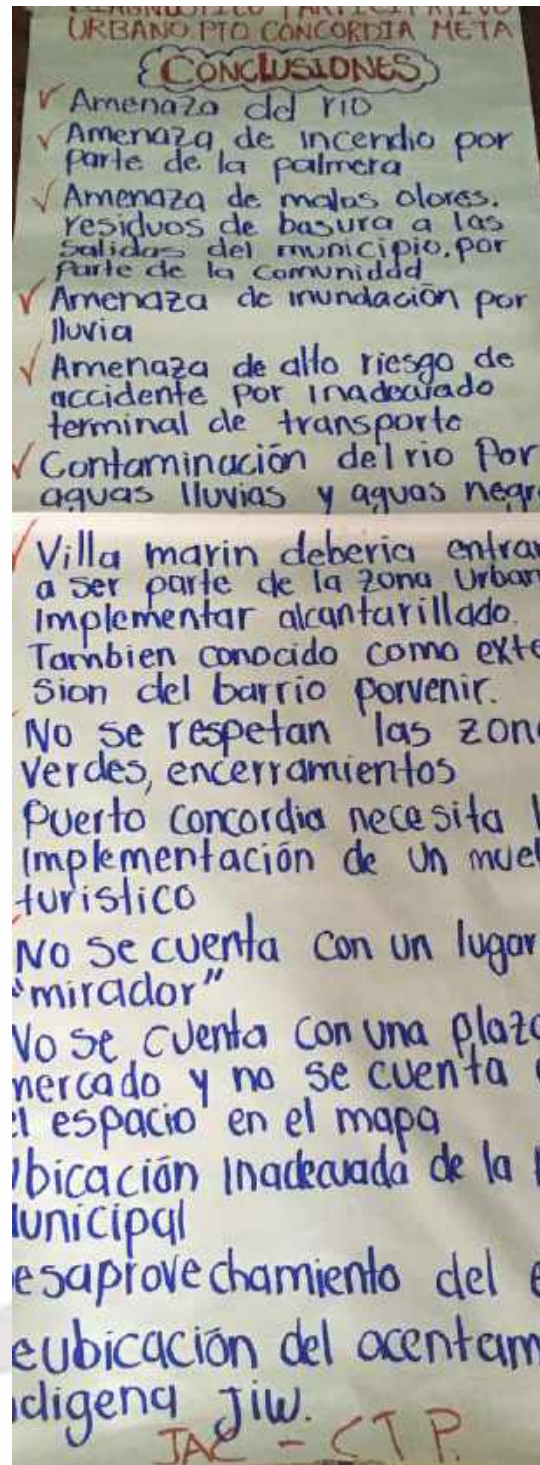 DIAGNOSTICO PARTICIPATIVO
URBANO PTO CONCORDIA META
CONCLUSIONES
Amenaza del rio
Amenaza de incendio por
parte de la palmera
Amenaza de malos olores.
residuos de basura a las
salidas del municipio. por
parte de la comunidad
Amenaza de inundación por
lluvia
Amenaza de alto riesgo de
accidente por inadecuado
terminal de transporte
Contaminación del rio Por
aguas lluvias y aguas negr
Villa marin deberia entrar
a ser parte de la zona Urban
Implementar alcantarillado.
Tambien conocido como exte
sion del barrio porvenir.
No se respetan las zon
verdes, encerramientos
Puerto concordia necesita
Implementación de un muel
turistico
No se cuenta con un lugar
"mirador"
No se cuenta con una plaza
mercado y no se cuenta
el espacio en el mapa
bicación Inadecuada de la
unicipal
esaprovechamiento del
eubicación del acentam
digena Jiw.
JAC - CTP.